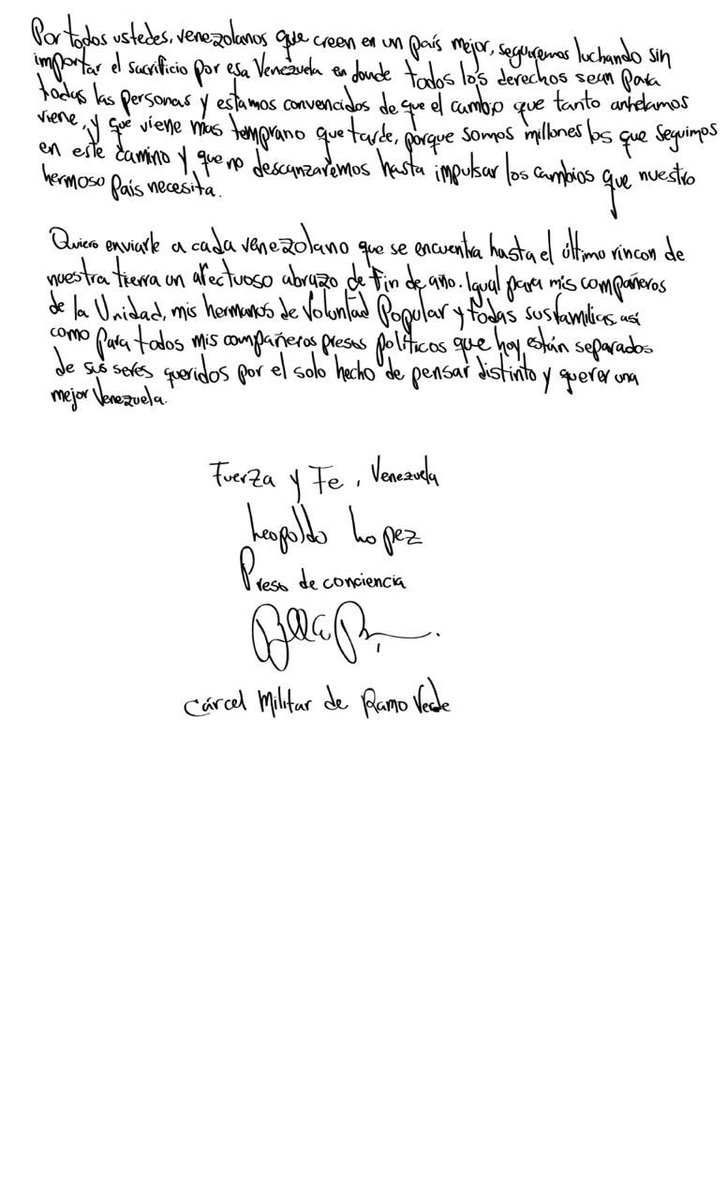 Por todos ustedes, venezolanos que creen en un país mejor, seguiremos luchando sin
importar el sacrificio por esa Venezuela en donde todos los derechos sean para
todas las personas y estamos convencidos de que el cambio que tanto anhelamos
viene, y que viene mas temprano que tarde, porque somos millones los que seguimos
en este camino y que no descanzaremos hasta impulsar los cambios que nuestro
hermoso País necesita.
Quiero enviarle a cada venezolano que se encuentra hasta el último rincon de
nuestra tierra un afectuoso abrazo de fin de año. Igual para mis compañeros
de la Unidad, mis hermanos de Voluntad Popular y todas sus familias, así
como para todos mis compañeros presos políticos que hoy están separados
de sus seres queridos por el solo hecho de pensar distinto y querer una
mejor Venezuela.
Fuerza y Fe, Venezuela
Leopoldo Lopez
Preso de conciencia
Cárcel Militar de Ramo Verde